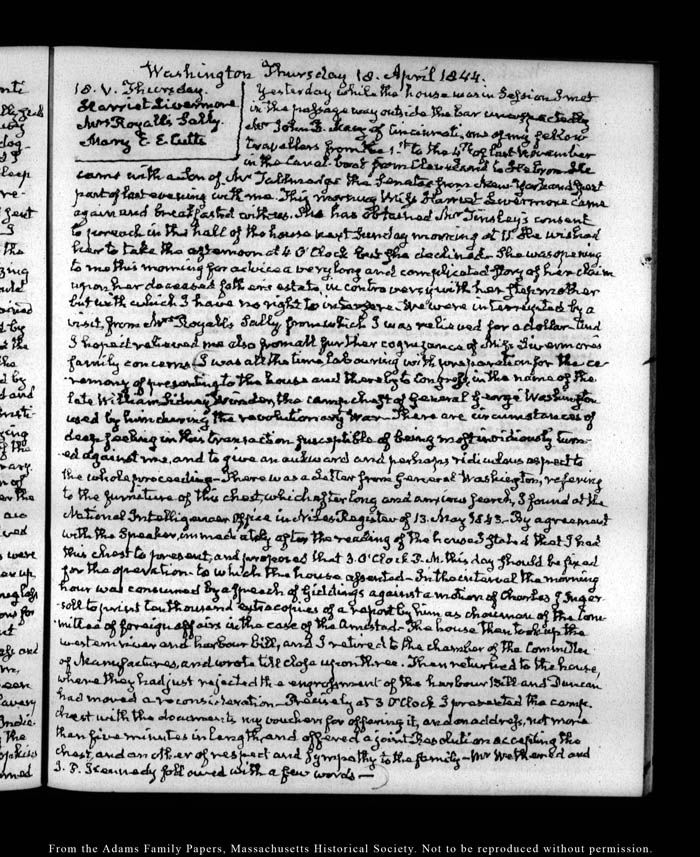 Washington Thursday 18. April 1844.
18. V. Thursday.
Harriet Livermore
Mrs Royall's Sally.
Mary E. E. Cutts
Yesterday while the house was in Session I met
in the passage way outside the bar unexpectedly
Mr John B. of Cincinnati, one of my fellow
travellers from the 1st to the 4th of last November
in the Canal-boat from Cleveland to Hebron. He
came with a Son of Mr Tallmadge the Senator from New-York and spent
part of last evening with me. This morning Miss Harriet Livermore came
again and breakfasted with us. She has obtained Mr Tinsley's consent
to preach in the hall of the house next Sunday morning at 11. He wished
her to take the afternoon at 4 O'Clock but she declined. She was opening
to me this morning for advice a very long and complicated Story of her claim
upon her deceased father's estate, in controversy with her Stepmother
but with which I have no right to interfere. We were interrupted by a
visit from Mrs Royall's Sally from which I was relieved for a dollar. And
I hope it relieved me also from all further cognizance of Miss Livermore's
family concerns. I was all the time labouring with preparation for the ce-
remony of presenting to the house and thereby to Congress, in the name of the
late William Sidney Winder, the camp chest of General George Washington
used by him during the revolutionary War. There are circumstances of
deep feeling in this transaction susceptible of being most invidiously turn-
ed against me, and to give an awkward and perhaps ridiculous aspect to
the whole proceeding—There was a Letter from General Washington, refering
to the furniture of this chest, which after long and anxious search, I found at the
National Intelligencer Office in Niles's Register of 13. May 1843. By agreement
with the Speaker, immediately after the reading of the house I stated that I had
this chest to present, and proposed that 3. O'Clock P.M. this day should be fixed
for the operation. to which the house assented—In the interval the morning
hour was consumed by a Speech of Giddings against a motion of Charles J Inger-
soll to print ten thousand extra copies of a report by him as chairman of the Com-
mittee of foreign affairs in the case of the Amistad—The house then took up the
western river and harbour bill, and I retired to the chamber of the Committee
of Manufactures, and wrote till close upon three. Then returned to the house,
where they had just rejected the engrossment of the harbour Bill and Duncan
had moved a reconsideration—Precisely at 3 O'Clock I presented the camp
chest with the documents my vouchers for offering it, and an address, not more
than five minutes in length and offered a joint Resolution accepting the
chest, and another of respect and Sympathy to the family—Mr Wethered and
J. P. Kennedy followed with a few words—
From the Adams Family Papers, Massachusetts Historical Society. Not to be reproduced without permission.